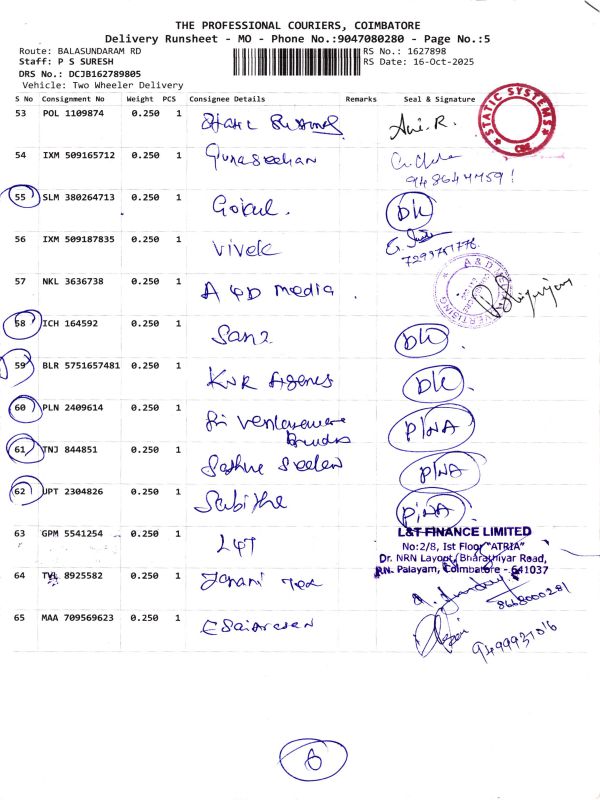 THE PROFESSIONAL COURIERS, COIMBATORE
Delivery Runsheet - MO - Phone No.:9047080280 - Page No.:5
Route: BALASUNDARAM RD RS No.: 1627898
Staff: P S SURESH RS Date: 16-Oct-2025
DRS No.: DCJB162789805
Vehicle: Two Wheeler Delivery
S No Consignment No Weight PCS Consignee Details Remarks Seal & Signature
53 POL 1109874 0.250 1 STATIC SYSTEMS CBE
54 IXM 509165712 0.250 1 Gunaseelan
55 SLM 380264713 0.250 1 Gokul. DK
56 IXM 509187835 0.250 1 Vivek
7293751776.
57 NKL 3636738 0.250 1 A 4D media.
58 ICH 164592 0.250 1 DK
59 BLR 5751657481 0.250 1 KNR Agenes DK
60 PLN 2409614 0.250 1 Sri Venkateswara P/NA
61 TNJ 844851 0.250 1 P/NA
62 JPT 2304826 0.250 1 Sabitha P/NA
63 GPM 5541254 0.250 1 L&T
L&T FINANCE LIMITED
No:2/8, Ist Floor "ATRIA"
Dr. NRN Layout, Bharathiyar Road,
RN. Palayam, Coimbatore - 641037
64 TVL 8925582 0.250 1 Janani Tex
65 MAA 709569623 0.250 1 Esaiarasan
6